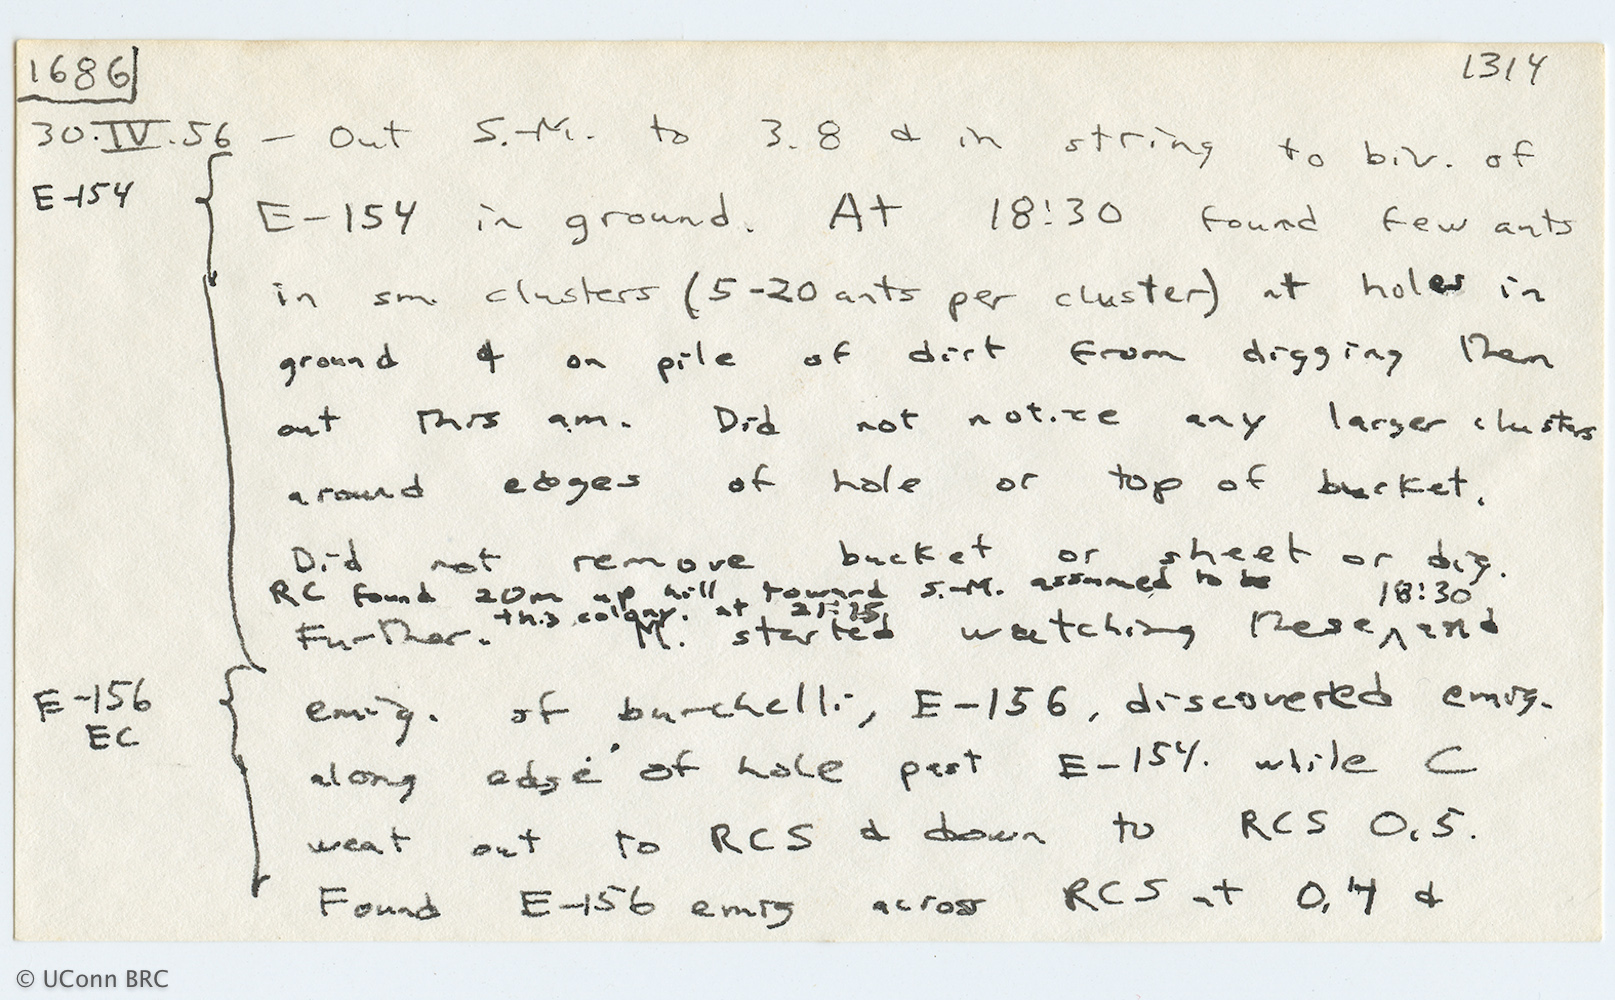 1686 1314
30.IV.56 — Out S.-M. to 3.8 & in string to biv. of
E-154
E-154 in ground. At 18:30 found few ants
in sm. clusters (5-20 ants per cluster) at holes in
ground & on pile of dirt from digging them
out this am. Did not notice any larger clusters
around edges of hole or top of bucket.
Did not remove bucket or sheet or dig.
RC found 20m up hill toward S.-M. assumed to be
this colony. at 21:15
18:30
Further. M. started watching these ^ and
E-156
EC
emig. of burchelli, E-156, discovered emig.
along edge of hole past E-154. while C
went out to RCS & down to RCS 0.5.
Found E-156 emig across RCS at 0.4 &
© UConn BRC